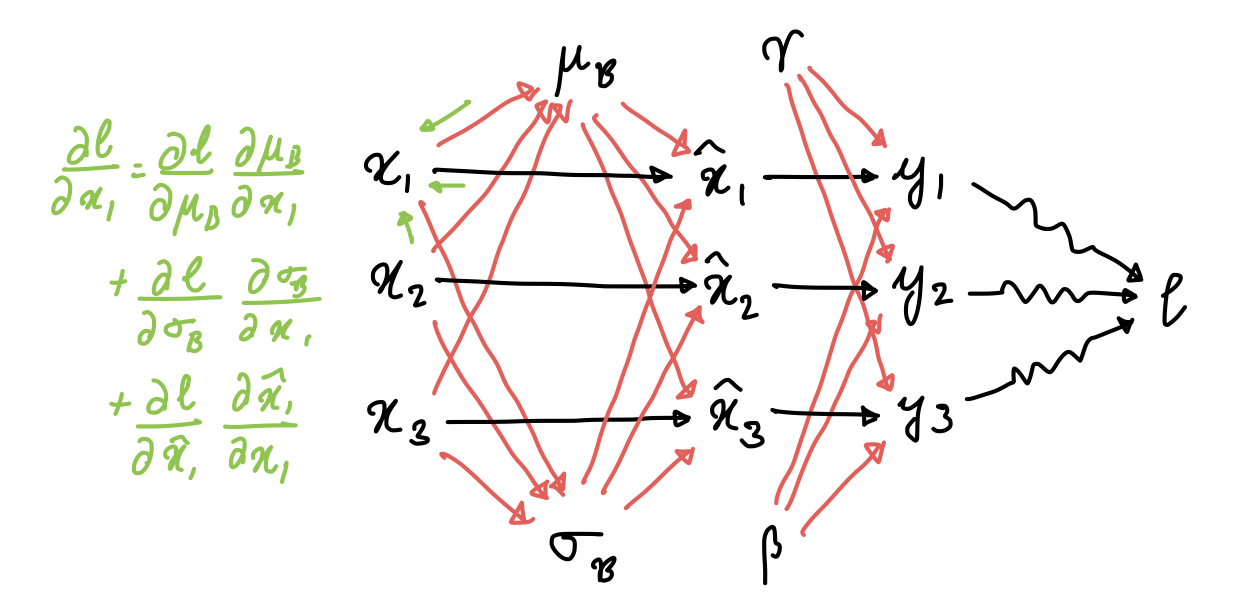 μ_B γ
∂ℓ/∂x₁ = ∂ℓ/∂μ_B ∂μ_B/∂x₁
+ ∂ℓ/∂σ_B ∂σ_B/∂x₁
+ ∂ℓ/∂x̂₁ ∂x̂₁/∂x₁
x₁ x̂₁ y₁
x₂ x̂₂ y₂ ℓ
x₃ x̂₃ y₃
σ_B β